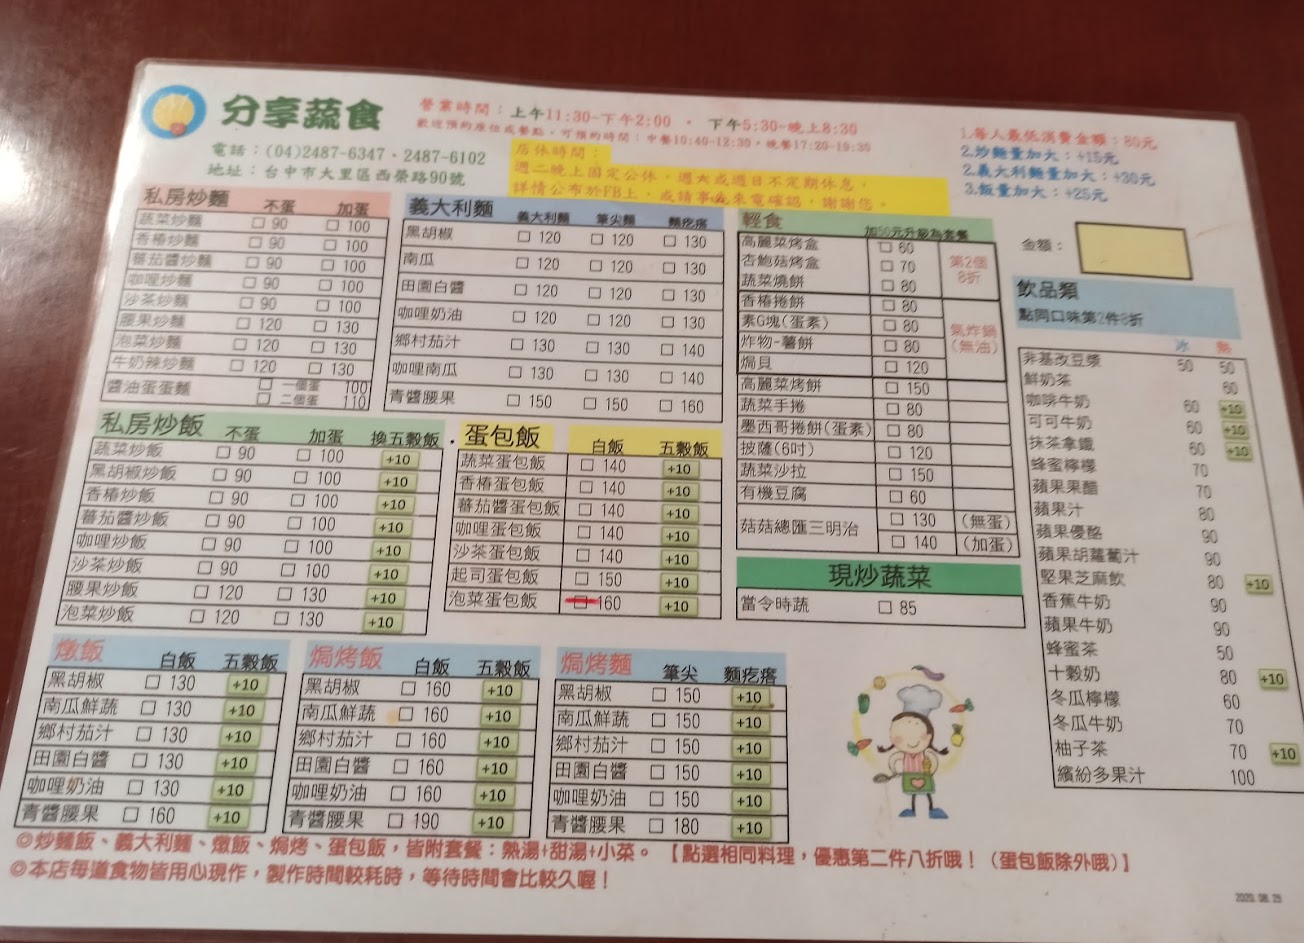 分享蔬食
營業時間：上午11:30~下午2:00 · 下午5:30~晚上8:30
歡迎預約座位或餐點，可預約時間：中餐10:40~12:30，晚餐17:20~19:30
電話：(04)2487-6347、2487-6102
地址：台中市大里區西榮路90號
店休時間：
週二晚上固定公休，週六或週日不定期休息，
詳情公布於FB上，或請事先來電確認，謝謝您。
1.每人最低消費金額：80元
2.炒麵量加大：+15元
2.義大利麵量加大：+30元
3.飯量加大：+25元
金額：
私房炒麵 不蛋 加蛋
蔬菜炒麵 □ 90 □ 100
香椿炒麵 □ 90 □ 100
蕃茄醬炒麵 □ 90 □ 100
咖哩炒麵 □ 90 □ 100
沙茶炒麵 □ 90 □ 100
腰果炒麵 □ 120 □ 130
泡菜炒麵 □ 120 □ 130
牛奶辣炒麵 □ 120 □ 130
醬油蛋蛋麵 □ 一個蛋 100
□ 二個蛋 110
義大利麵 義大利麵 筆尖麵 麵疙瘩
黑胡椒 □ 120 □ 120 □ 130
南瓜 □ 120 □ 120 □ 130
田園白醬 □ 120 □ 120 □ 130
咖哩奶油 □ 120 □ 120 □ 130
鄉村茄汁 □ 130 □ 130 □ 140
咖哩南瓜 □ 130 □ 130 □ 140
青醬腰果 □ 150 □ 150 □ 160
輕食 加50元升級為套餐
高麗菜烤盒 □ 60
杏鮑菇烤盒 □ 70
蔬菜燒餅 □ 80
第2個
8折
香椿捲餅 □ 80
素G塊(蛋素) □ 80
炸物-薯餅 □ 80
焗貝 □ 120
氣炸鍋
(無油)
高麗菜烤餅 □ 150
蔬菜手捲 □ 80
墨西哥捲餅(蛋素) □ 80
披薩(6吋) □ 120
蔬菜沙拉 □ 150
有機豆腐 □ 60
菇菇總匯三明治 □ 130 (無蛋)
□ 140 (加蛋)
現炒蔬菜
當令時蔬 □ 85
飲品類
點同口味第2件8折
冰 熱
非基改豆漿 50 50
鮮奶茶 60
咖啡牛奶 60 +10
可可牛奶 60 +10
抹茶拿鐵 60 +10
蜂蜜檸檬 70
蘋果果醋 70
蘋果汁 80
蘋果優酪 90
蘋果胡蘿蔔汁 90
堅果芝麻飲 80 +10
香蕉牛奶 90
蘋果牛奶 90
蜂蜜茶 50
十穀奶 80 +10
冬瓜檸檬 60
冬瓜牛奶 70
柚子茶 70 +10
繽紛多果汁 100
私房炒飯 不蛋 加蛋 換五穀飯
蔬菜炒飯 □ 90 □ 100 +10
黑胡椒炒飯 □ 90 □ 100 +10
香椿炒飯 □ 90 □ 100 +10
蕃茄醬炒飯 □ 90 □ 100 +10
咖哩炒飯 □ 90 □ 100 +10
沙茶炒飯 □ 90 □ 100 +10
腰果炒飯 □ 120 □ 130 +10
泡菜炒飯 □ 120 □ 130 +10
蛋包飯 白飯 五穀飯
蔬菜蛋包飯 □ 140 +10
香椿蛋包飯 □ 140 +10
蕃茄醬蛋包飯 □ 140 +10
咖哩蛋包飯 □ 140 +10
沙茶蛋包飯 □ 140 +10
起司蛋包飯 □ 150 +10
泡菜蛋包飯 □ 160 +10
燉飯 白飯 五穀飯
黑胡椒 □ 130 +10
南瓜鮮蔬 □ 130 +10
鄉村茄汁 □ 130 +10
田園白醬 □ 130 +10
咖哩奶油 □ 130 +10
青醬腰果 □ 160 +10
焗烤飯 白飯 五穀飯
黑胡椒 □ 160 +10
南瓜鮮蔬 □ 160 +10
鄉村茄汁 □ 160 +10
田園白醬 □ 160 +10
咖哩奶油 □ 160 +10
青醬腰果 □ 190 +10
焗烤麵 筆尖 麵疙瘩
黑胡椒 □ 150 +10
南瓜鮮蔬 □ 150 +10
鄉村茄汁 □ 150 +10
田園白醬 □ 150 +10
咖哩奶油 □ 150 +10
青醬腰果 □ 180 +10
◎炒麵飯、義大利麵、燉飯、焗烤、蛋包飯，皆附套餐：熱湯+甜湯+小菜。【點選相同料理，優惠第二件八折哦！（蛋包飯除外哦）】
◎本店每道食物皆用心現作，製作時間較耗時，等待時間會比較久喔！
2020.08.25